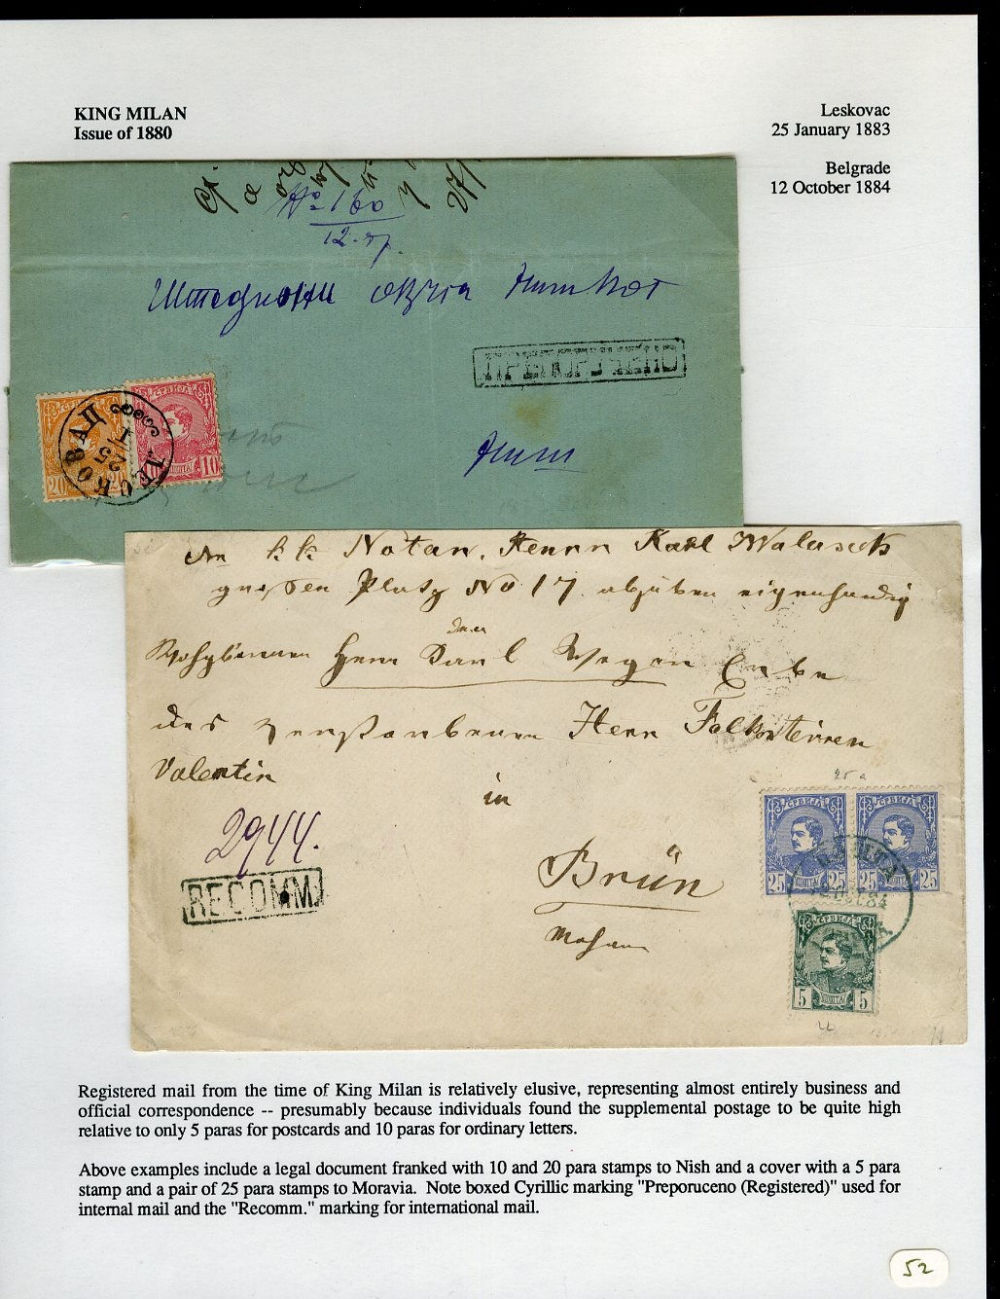 KING MILAN
Issue of 1880
Leskovac
25 January 1883
Belgrade
12 October 1884
№ 160
12.
ПРЕПОРУЧЕНО
СРБИЈА
СРБИЈА
20
10
ЛЕСКОВАЦ
An k k Notar, Herrn Karl
großen Platz No 17 abzuben eigenhändig
Herrn
des Herrn
Valentin
in
2944.
RECOMM.
Brünn
СРБИЈА
СРБИЈА
25 25 25 25
СРБИЈА
5 5
Registered mail from the time of King Milan is relatively elusive, representing almost entirely business and
official correspondence -- presumably because individuals found the supplemental postage to be quite high
relative to only 5 paras for postcards and 10 paras for ordinary letters.
Above examples include a legal document franked with 10 and 20 para stamps to Nish and a cover with a 5 para
stamp and a pair of 25 para stamps to Moravia. Note boxed Cyrillic marking "Preporuceno (Registered)" used for
internal mail and the "Recomm." marking for international mail.
52